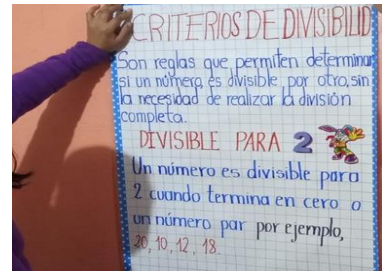 CRITERIOS DE DIVISIBILID
Son reglas que permiten determinar
si un número, es divisible por otro, sin
la necesidad de realizar la división
completa.
DIVISIBLE PARA 2
Un número es divisible para
2 cuando termina en cero o
un número par por ejemplo,
20, 10, 12, 18.